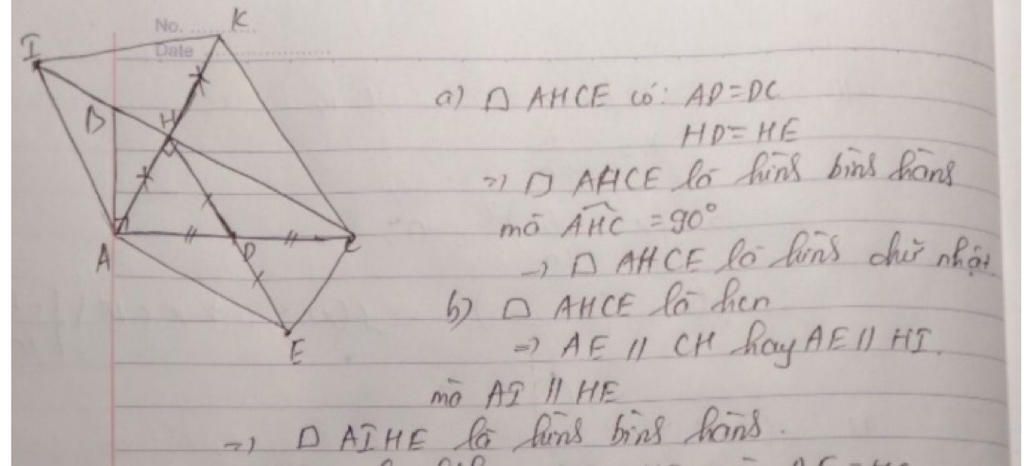 No.
Date
K
I
B
H
A
D
C
E
a) □ AHCE có: AD=DC
HD=HE
=) □ AHCE là hình bình hành
mà AHC = 90°
→ □ AHCE là hình chữ nhật
b) □ AHCE là hcn
=) AE // CH hay AE // HI.
mà AI // HE
=) □ AIHE là hình bình hành.